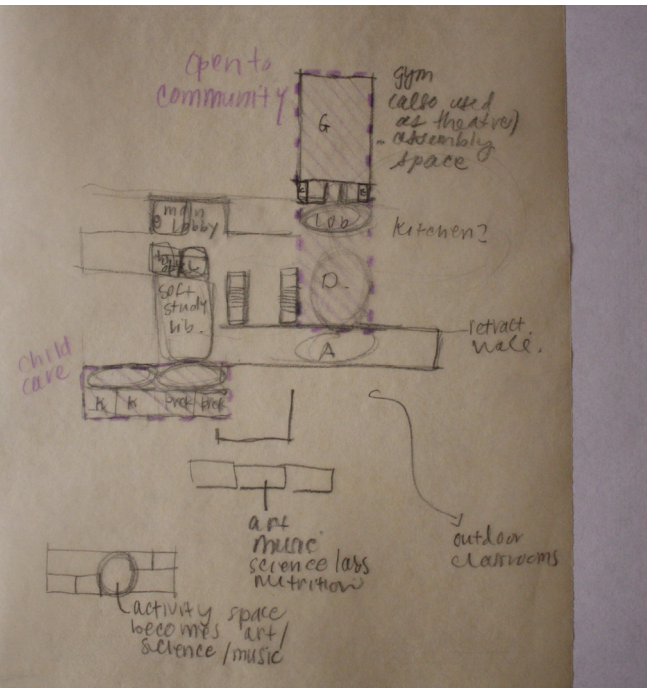 open to
community
gym
(also used
as theatre)
assembly
space
G
main
lobby
Lob
kitchen?
D.
soft
study
lib.
A
retract
wall.
child
care
K K prek prek
art
music
science labs
nutrition
outdoor
classrooms
activity space
becomes art/
science/music